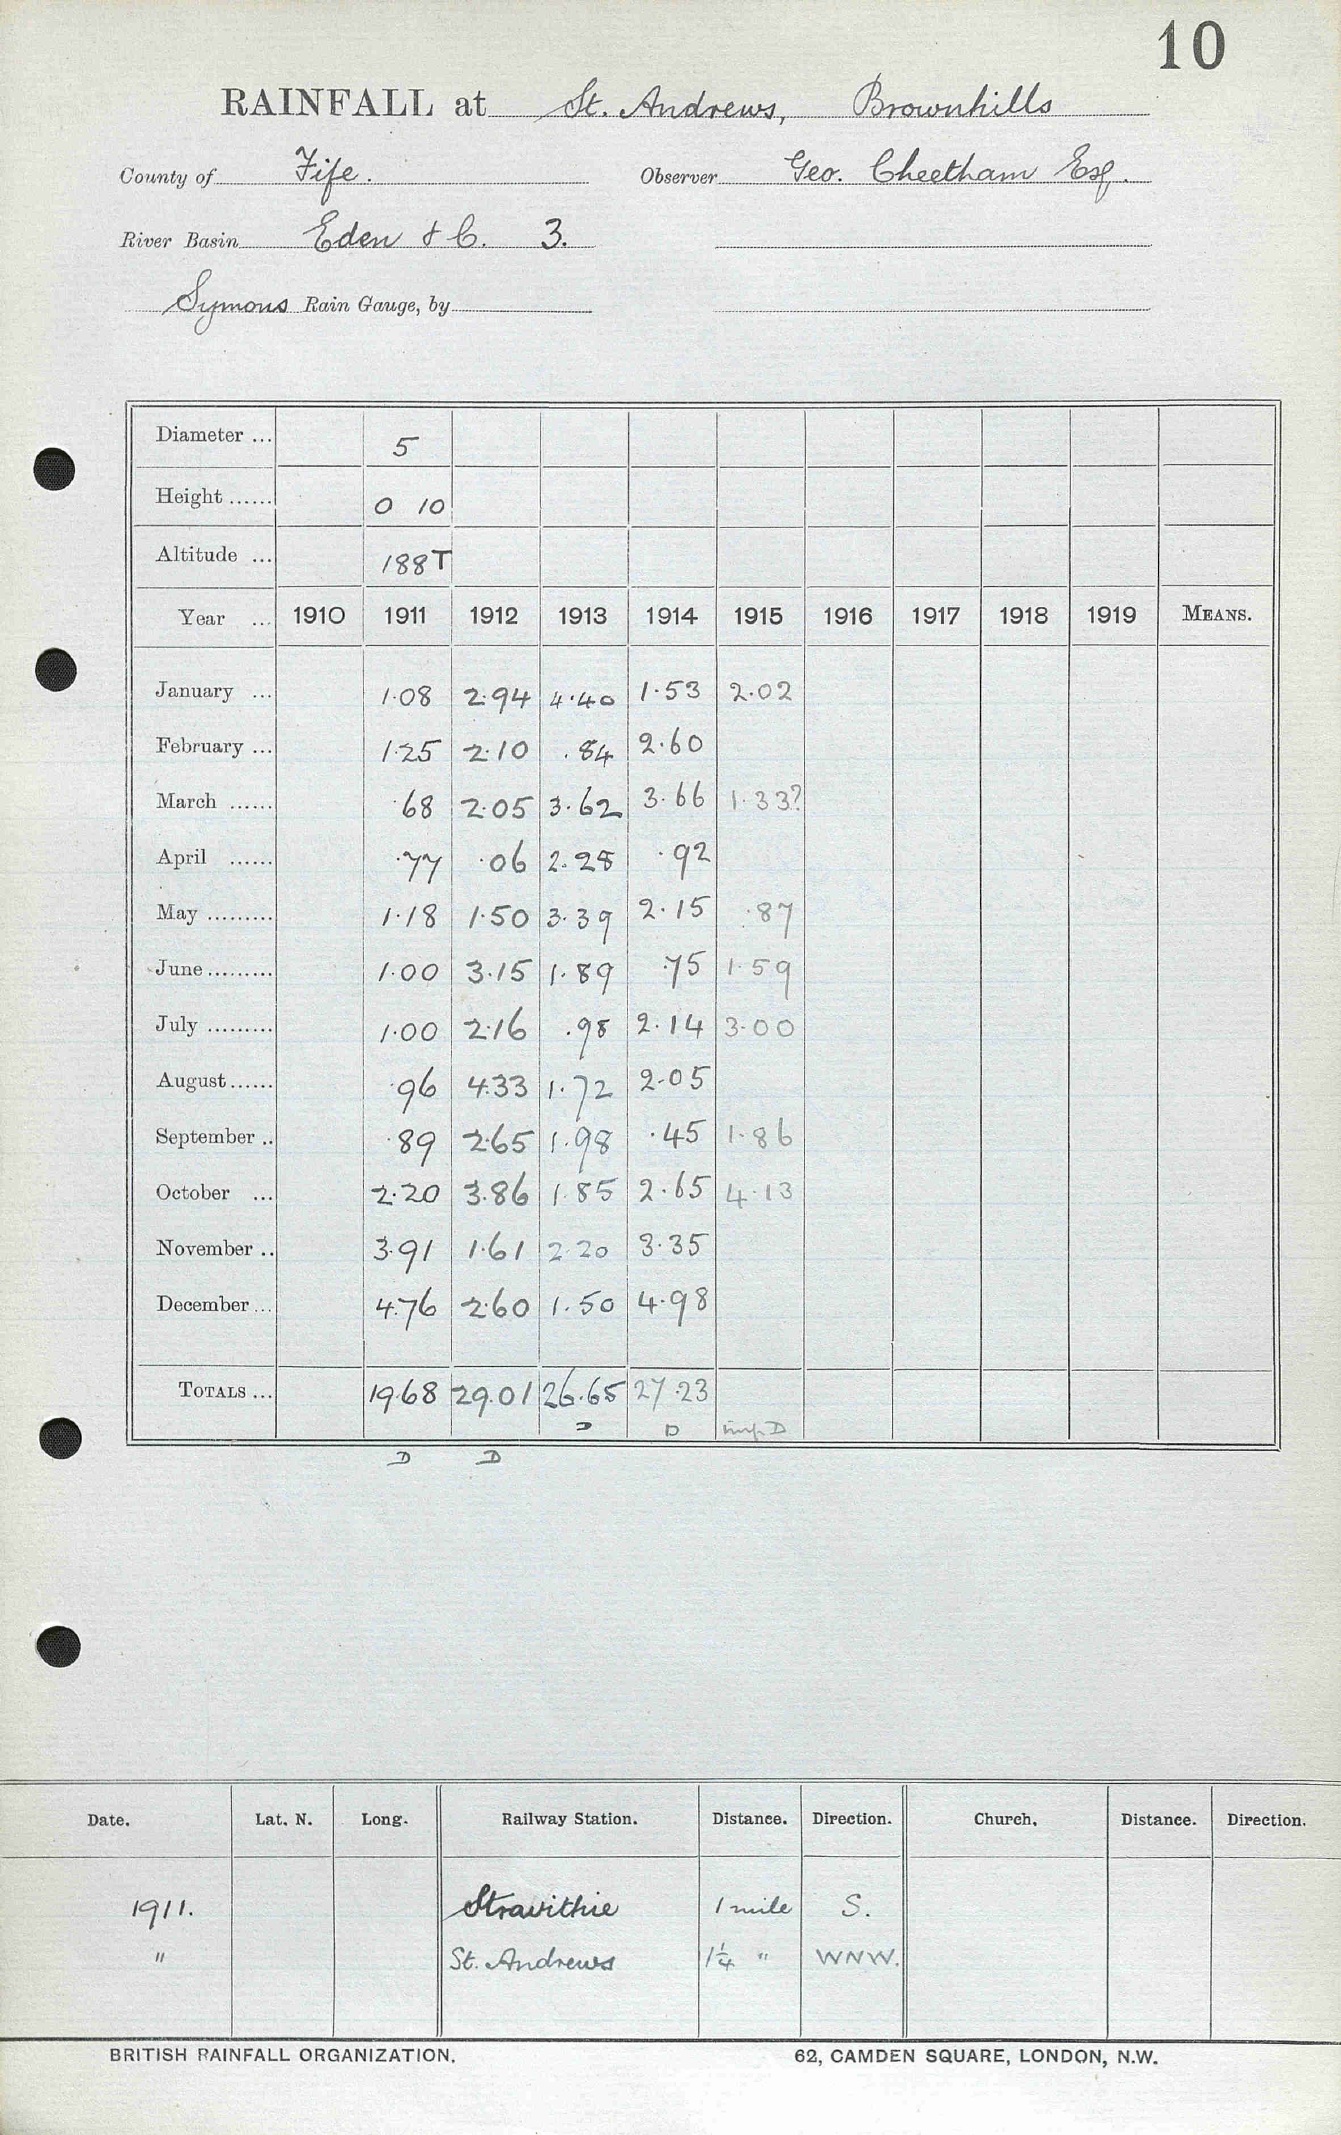 10
RAINFALL at St. Andrews, Brownhills
County of Fife. Observer Geo. Cheetham Esq.
River Basin Eden & C. 3.
Symons Rain Gauge, by
Diameter ... 5
Height ...... 0 10
Altitude ... 188T
Year ... 1910 1911 1912 1913 1914 1915 1916 1917 1918 1919 MEANS.
January ... 1.08 2.94 4.40 1.53 2.02
February ... 1.25 2.10 .84 2.60
March ...... .68 2.05 3.62 3.66 1.33?
April ...... .77 .06 2.28 .92
May ......... 1.18 1.50 3.39 2.15 .87
June ......... 1.00 3.15 1.89 .75 1.59
July ......... 1.00 2.16 .98 2.14 3.00
August ...... .96 4.33 1.72 2.05
September .. .89 2.65 1.98 .45 1.86
October ... 2.20 3.86 1.85 2.65 4.13
November .. 3.91 1.61 2.20 3.35
December ... 4.76 2.60 1.50 4.98
TOTALS ... 19.68 29.01 26.65 27.23
D D imp. D
D D
Date. Lat. N. Long. Railway Station. Distance. Direction. Church. Distance. Direction.
1911. Stravithie 1 mile S.
" St. Andrews 1¼ " WNW.
BRITISH RAINFALL ORGANIZATION. 62, CAMDEN SQUARE, LONDON, N.W.